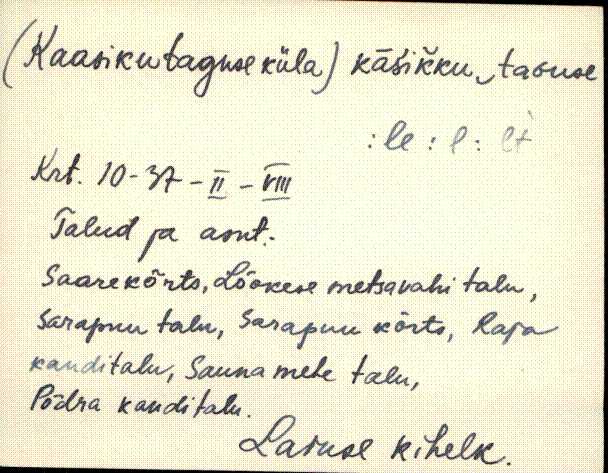 (Kaasikutaguse küla) kāśiκ̆κu‿taɢuse
: le : l : lt
Krt. 10-37-II-VIII
Talud ja asnt.
Saarekõrts, Lõokese metsavahi talu,
Sarapuu talu, Sarapuu kõrts, Raja
kanditalu, Sauna mehe talu,
Põdra kanditalu.
Laiuse kihelk.